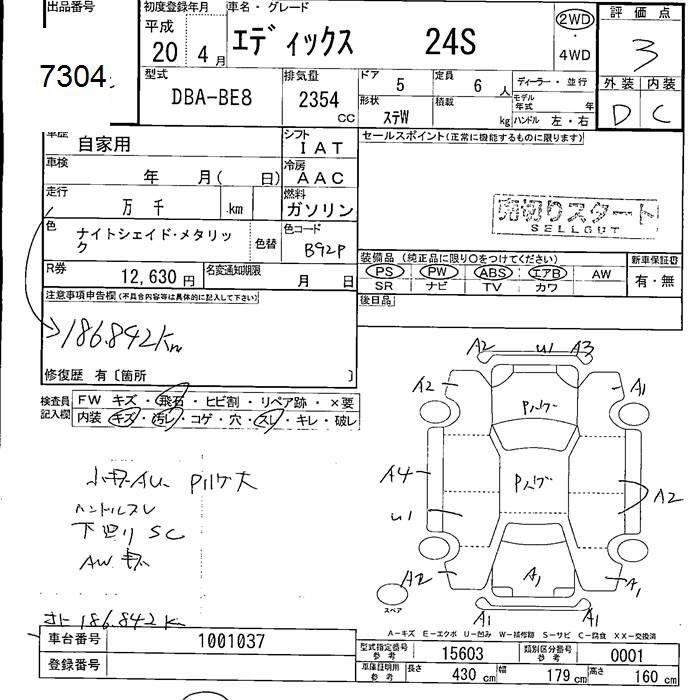 出品番号
7304
初度登録年月
平成 20 4 月
車名・グレード
エディックス 24S
2WD
・
4WD
評価点
3
外装 内装
D C
型式
DBA-BE8
排気量
2354 CC
ドア 5
定員 6 人
形状 ステW
積載 kg
ディーラー・並行
モデル年式 年
ハンドル 左・右
車歴
自家用
シフト
IAT
車検
年 月( 日)
冷房
AAC
走行
万 千 km
燃料
ガソリン
色
ナイトシェイド・メタリック
色替
色コード
B92P
R券
12,630 円
名変通知期限
月 日
セールスポイント(正常に機能するものに限ります)
売切りスタート
SELLOUT
装備品 (純正品に限り○をつけてください)
PS PW ABS エアB AW
SR ナビ TV カワ
新車保証書
有・無
後日品
注意事項申告欄(不具合内容等は具体的に記入して下さい)
186.842km
修復歴 有〔箇所 〕
検査員記入欄
FW キズ・飛石・ヒビ割・リペア跡・×要
内装 キズ・汚レ・コゲ・穴・スレ・キレ・破レ
ハンドルスレ
下廻り SC
AW キズ
186.842K
A2 U1 A3
A2 A1
A4
U1
A2
A2 A1 A1
A1 A1
スペア
A-キズ E-エクボ U-凹み W-補修跡 S-サビ C-腐食 XX-交換済
車台番号
1001037
登録番号
型式指定番号 参考
15603
類別区分番号 参考
0001
車庫証明用 参考
長さ 430 cm
幅 179 cm
高さ 160 cm